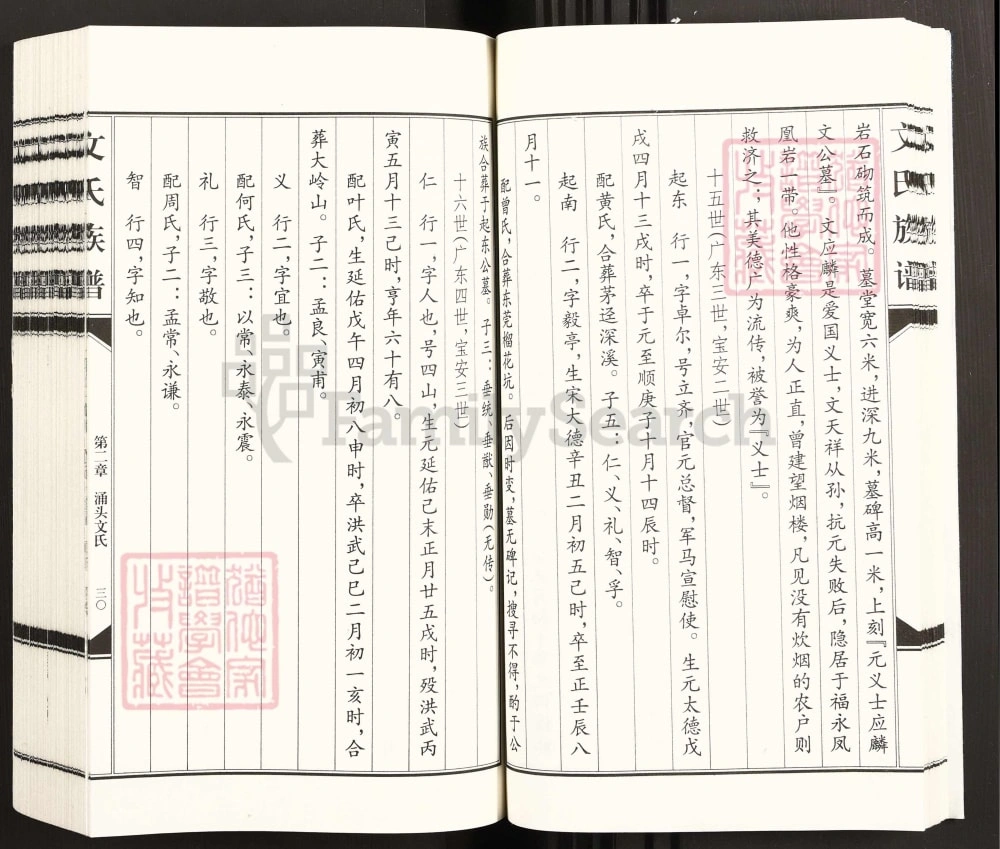 文氏族谱
岩石砌筑而成。墓堂宽六米，进深九米，墓碑高一米，上刻『元义士应麟
文公墓』。文应麟是爱国义士，文天祥从孙，抗元失败后，隐居于福永凤
凰岩一带。他性格豪爽，为人正直，曾建望烟楼，凡见没有炊烟的农户则
救济之；其美德广为流传，被誉为『义士』。
十五世（广东三世，宝安二世）
起东 行一，字卓尔，号立齐，官元总督，军马宣慰使。生元太德戊
戌四月十三戌时，卒于元至顺庚子十月十四辰时。
配黄氏，合葬茅迳深溪。子五：仁、义、礼、智、孚。
起南 行二，字毅亭，生宋大德辛丑二月初五己时，卒至正壬辰八
月十一。
配曾氏，合葬东莞榴花坑。后因时变，墓无碑记，搜寻不得，酌于公
族合葬于起东公墓。子三：垂统、垂猷、垂勋（无传）。
十六世（广东四世，宝安三世）
仁 行一，字人也，号四山，生元延佑己未正月廿五戌时，殁洪武丙
寅五月十三己时，亨年六十有八。
配叶氏，生延佑戊午四月初八申时，卒洪武己巳二月初一亥时，合
葬大岭山。子二：孟良、寅甫。
义 行二，字宜也。
配何氏，子三：以常、永泰、永震。
礼 行三，字敬也。
配周氏，子二：孟常、永谦。
智 行四，字知也。
文氏族谱
第二章 涌头文氏
三〇
FamilySearch